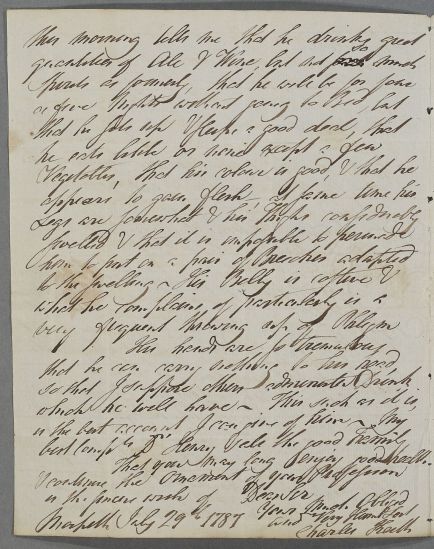 this morning tells me that he drinks great
quantities of Ale & Wine, but not so much
Spirits as formerly, that he will be for four
or five Nights without going to Bed, but
that he sits up & sleeps a good deal, that
he eats little or none except a few
Vegetables, that his colour is good, & that he
appears to gain flesh, at same time his
Legs are somewhat & his thighs considerably
swelled & that it is impossible to persuade
him to put on a pair of Breeches adapted
to the swelling - His Belly is costive &
what he complains of particularly is a
very frequent throwing up of Phlegm
His hands are so tremulous
that he can carry nothing to his head,
so that I suppose others administer Drink
which he will have - This such as it is,
is the best account I can give of him - My
best comp.ts to D.r Henry & all the good Family
That you may long enjoy good health
& continue the ornament of your Profession
is the sincere wish of
Dear Sir
Your much obliged
and very Hum
Morpeth July 29th 1787
Charles